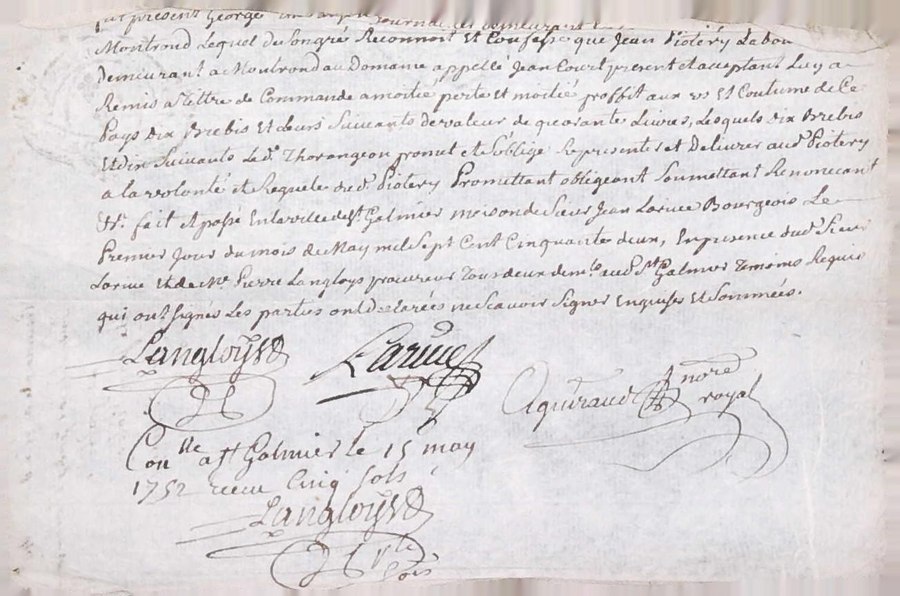 fut present George journal demeurant
Montrond Lequel de son gré Reconnoit Et Confesse que Jean Piotéry Labou
Demeurant a Montrond au Domaine appellé Jean Court present et acceptant Luy a
Remis a tittre de Commande a moitié perte et moitié proffit aux us et Coutume de Ce
Pays Dix Brebis Et Leurs Suivants de valeur de quarante Livres, Lesquels dix Brebis
Et dix Suivants Led. Thorangeon promet et s'oblige Representer et Delivrer aud. Piotery
a la volonté et Requete dud. Piotery Promettant obligeant Soumettant Renoncant
&c. fait et passé En la ville de St Galmier maison de Sieur Jean Larüe Bourgeois Le
Premier Jour du mois de May mil Sept Cent Cinquante deux, En presence dud. Sieur
Larüe et de Me Pierre Langloys procureur Tous deux aud. St Galmier Temoins Requis
qui ont signés Les parties ont declarées ne Scavoir Signer Enquises Et Sommées.
Langloys
Larüe
nore
royal
Conlle a St Galmier le 15 may
1752 receu Cinq Sols
Langloys